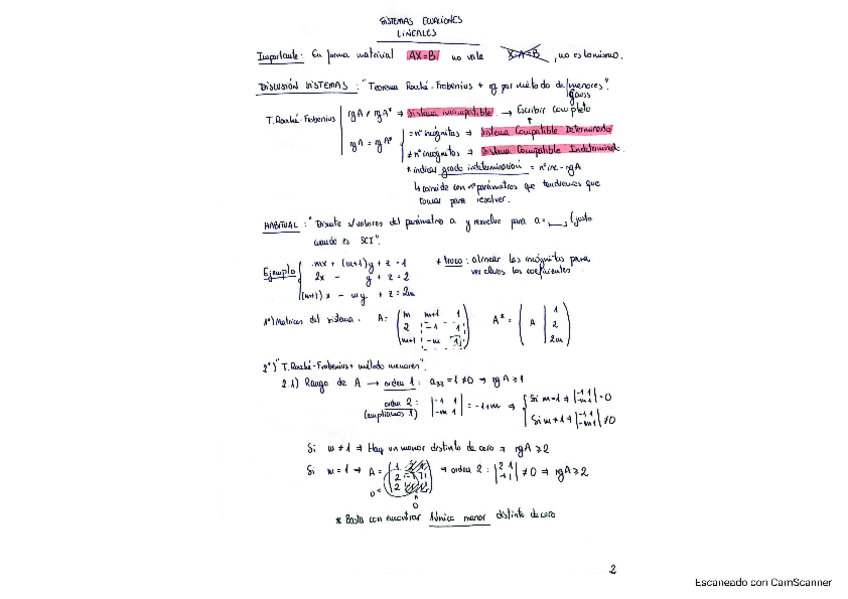 SISTEMAS ECUACIONES
LINEALES
Importante: En forma matricial AX=B no vale X·A=B, no es lo mismo.
DISCUSIÓN SISTEMAS: "Teorema Rouché-Frobenius + rg por método de/menores".
gauss
T. Rouché-Frobenius rgA ≠ rgA* → Sistema incompatible. → Escribir completo
rgA = rgA* = nº incógnitas → Sistema Compatible Determinado
≠ nº incógnitas → Sistema Compatible Indeterminado.
* indicar grado indeterminación = nº inc - rgA
↳ coincide con nº parámetros que tendremos que
tomar para resolver.
HABITUAL: "Discute s/valores del parámetro a y resuelve para a=__, (justo
cuando es SCI".
Ejemplo mx + (m+1)y + z = 1
2x - y + z = 2
(m+1)x - my + z = 2m
* truco: alinear las incógnitas para
ver claros los coeficientes
1º) Matrices del sistema. A: (m m+1 1
2 -1 1
m+1 -m 1) A* = (A | 1
2
2m)
2º) "T. Rouché-Frobenius + método menores".
2.1) Rango de A → orden 1: a₃₃ = 1 ≠ 0 → rgA ≥ 1
orden 2: |-1 1
-m 1| = -1+m → Si m=1 → |-1 1
-m 1| = 0
(ampliamos 1) Si m≠1 → |-1 1
-m 1| ≠ 0
Si m ≠ 1 → Hay un menor distinto de cero → rgA ≥ 2
Si m = 1 → A = → orden 2: |2 1
-1 1| ≠ 0 → rgA ≥ 2
* Basta con encontrar 1único menor distinto de cero
2
Escaneado con CamScanner